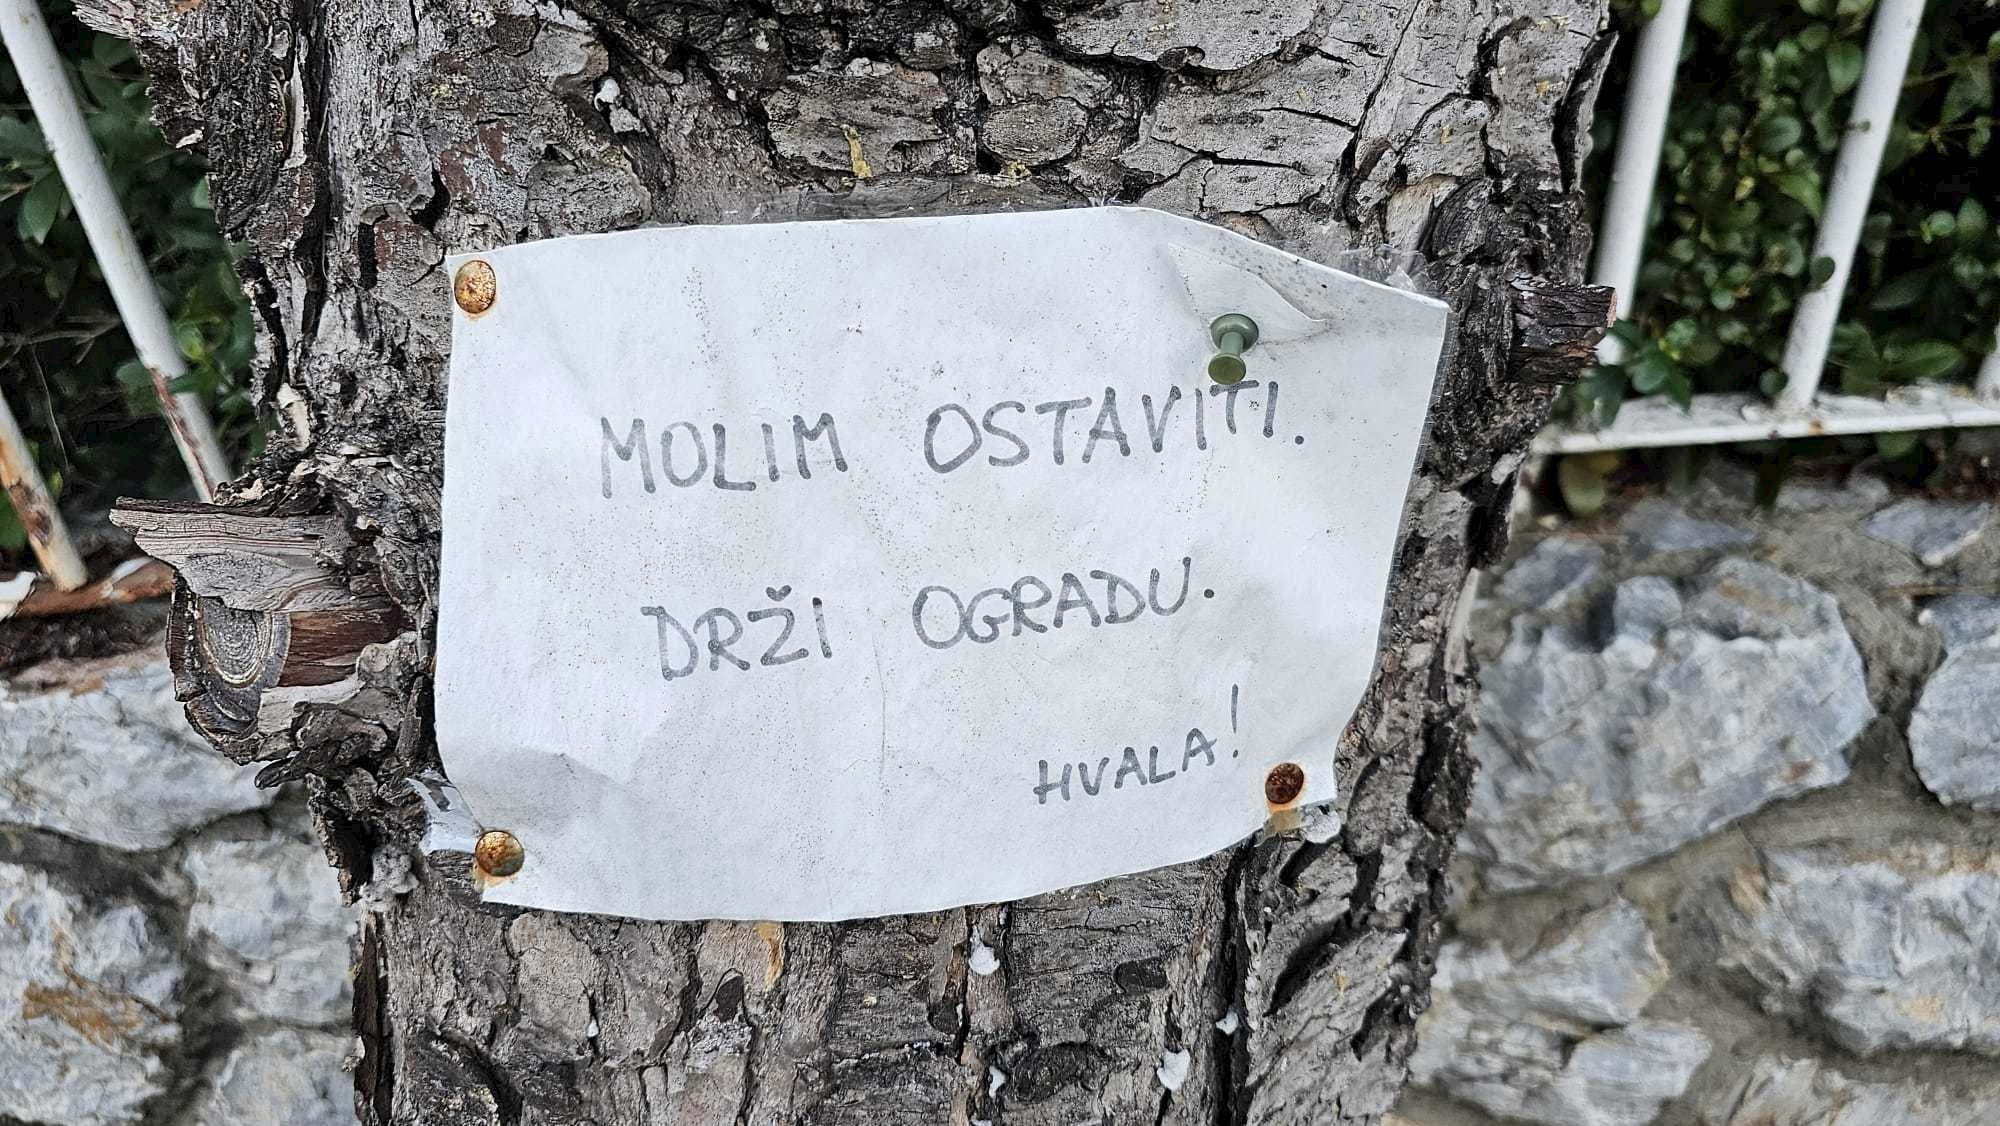 MOLIM OSTAVITI.
DRŽI OGRADU.
HVALA!